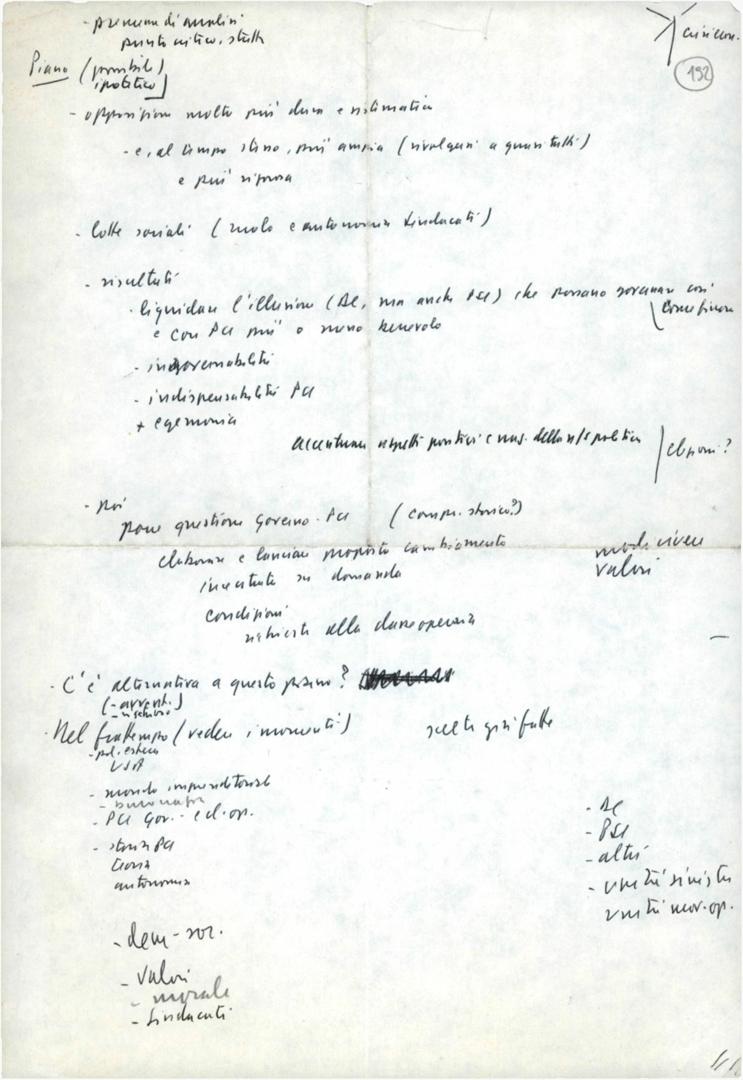 - premessa di analisi
punto critico, stretta
192
Piano (possibile)
ipotetico
- opposizione molto più dura e sistematica
- e, al tempo stesso, più ampia (rivolgersi a quasi tutti)
e più rigorosa
- lotte sociali (ruolo e autonomia sindacati)
- risultati
- liquidare l'illusione (DC, ma anche PSI) che possano governare così
come finora
e con PCI più o meno benevolo
- ingovernabilità
- indispensabilità PCI
+ egemonia
accentuare aspetti positivi e della ns/ politica
elezioni?
- poi
porre questione Governo-PCI (compr. storico?)
elaborare e lanciare proposta cambiamento
incentrata su domanda
modi vivere
valori
condizioni
richieste alla classe operaia
- C'è alternativa a questo piano?
- Nel frattempo (vedere i momenti)
scelte già fatte
- pol. estera
USA
- mondo imprenditoriale
- burocrazia
- PCI Gov. - e cl. op.
- storia PCI
teoria
autonomia
- DC
- PSI
- altri
- unità sinistra
unità mov. op.
- dem - soc.
- valori
- morale
- sindacati